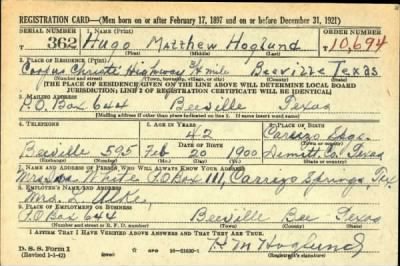 REGISTRATION CARD—(Men born on or after February 17, 1897 and on or before December 31, 1921)
SERIAL NUMBER 1. NAME (Print) ORDER NUMBER
T 362 Hugo Matthew Hoglund 10,694
2. PLACE OF RESIDENCE (Print)
Corpus Christi Highway 3/4 mile Beeville Texas
(Number and street) (Town, township, village, or city) (County) (State)
[THE PLACE OF RESIDENCE GIVEN ON THE LINE ABOVE WILL DETERMINE LOCAL BOARD
JURISDICTION; LINE 2 OF REGISTRATION CERTIFICATE WILL BE IDENTICAL]
3. MAILING ADDRESS
P.O. Box 644 Beeville Texas
[Mailing address if other than place indicated on line 2. If same insert word same]
4. TELEPHONE 5. AGE IN YEARS 6. PLACE OF BIRTH
42 Carrizo Spgs.
DATE OF BIRTH (Town or county)
Beeville 595 Feb 20 1900 Dimitt Co. Texas
(Exchange) (Number) (Mo.) (Day) (Yr.) (State or country)
7. NAME AND ADDRESS OF PERSON WHO WILL ALWAYS KNOW YOUR ADDRESS
Mrs. White P.O. Box 111, Carrizo Springs, Tex.
8. EMPLOYER'S NAME AND ADDRESS
Mrs. L.
9. PLACE OF EMPLOYMENT OR BUSINESS
P.O. Box 644 Beeville Bee Texas
(Number and street or R. F. D. number) (Town) (County) (State)
I AFFIRM THAT I HAVE VERIFIED ABOVE ANSWERS AND THAT THEY ARE TRUE.
D. S. S. Form 1
(Revised 1-1-42) GPO 16—21630-1 H M Hoglund